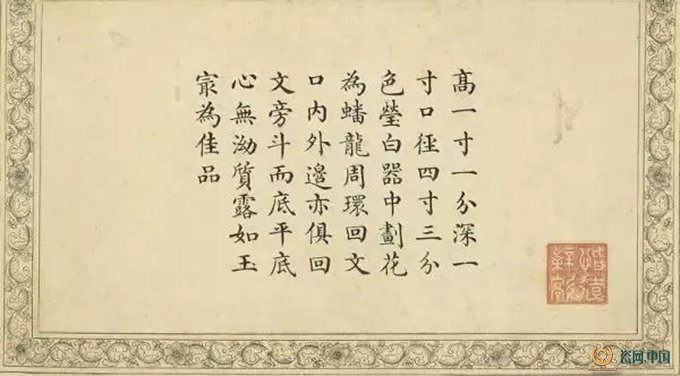 髙一寸一分深一
寸口徑四寸三分
色瑩白器中劃花
為蟠龍周環回文
口內外邉亦俱回
文旁斗而底平底
心無泑質露如玉
㝡為佳品
瓷网.中国